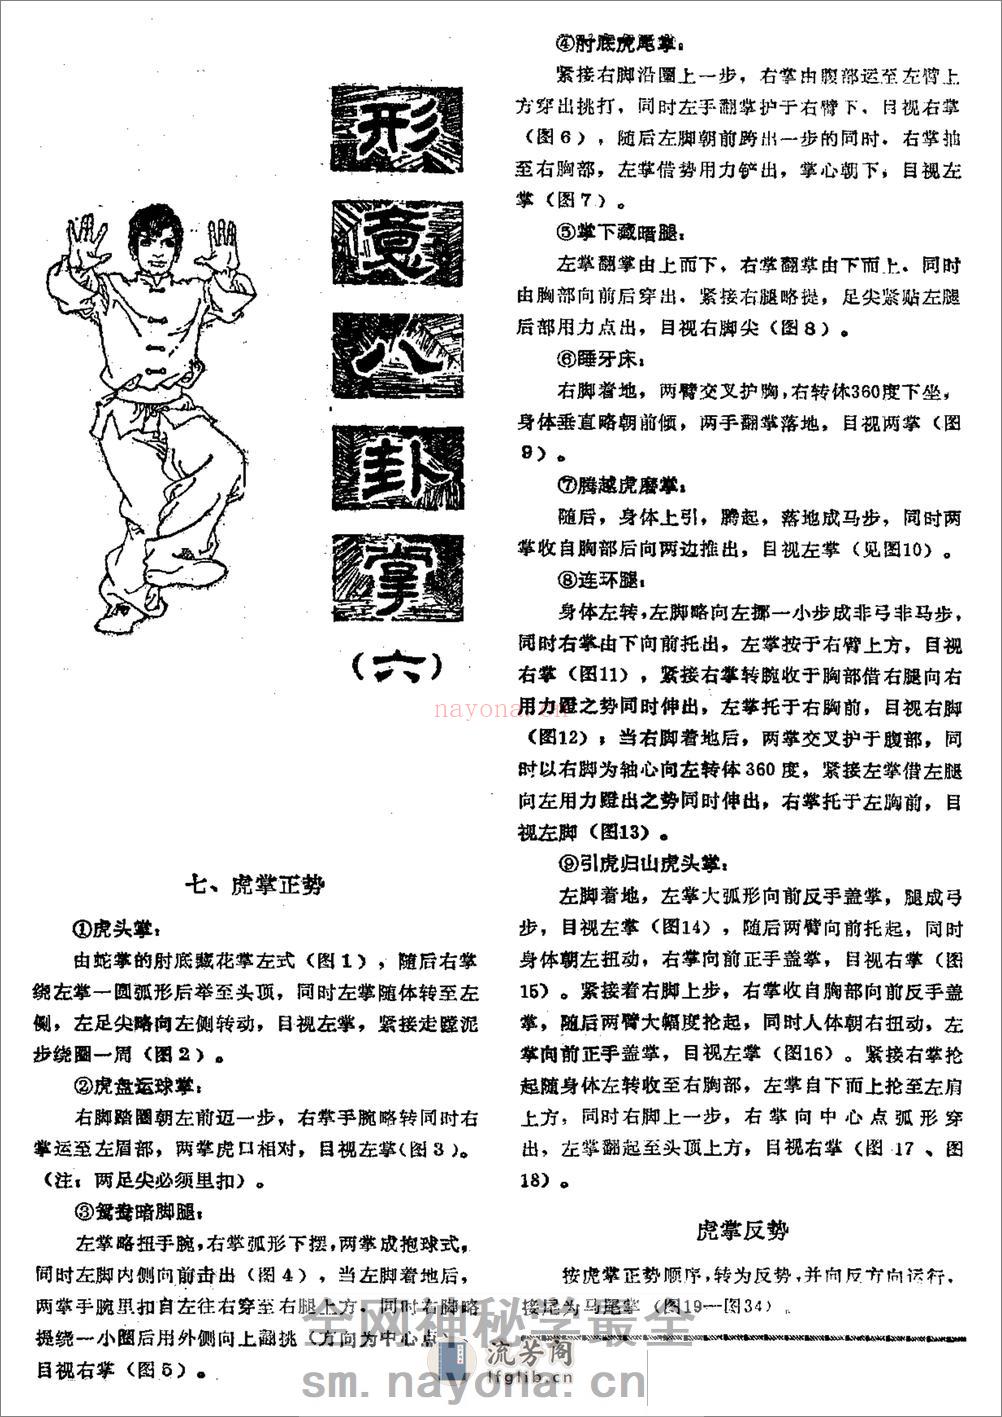 形
意
八
卦
掌
（六）
七、虎掌正势
①虎头掌：
由蛇掌的肘底藏花掌左式（图1），随后右掌
绕左掌一圆弧形后举至头顶，同时左掌随体转至左
侧，左足尖略向左侧转动，目视左掌，紧接走蹚泥
步绕圈一周（图2）。
②虎盘运球掌：
右脚踏圈朝左前迈一步，右掌手腕略转同时右
掌运至左眉部，两掌虎口相对，目视左掌（图3）。
（注：两足尖必须里扣）。
③鸳鸯暗脚腿：
左掌略扭手腕，右掌弧形下摆，两掌成抱球式，
同时左脚内侧向前击出（图4），当左脚着地后，
两掌手腕里扣自左往右穿至右腿上方，同时右脚略
提绕一小圈后用外侧向上翻挑（方向为中心点），
目视右掌（图5）。
④肘底虎尾掌：
紧接右脚沿圈上一步，右掌由腹部运至左臂上
方穿出挑打，同时左手翻掌护于右臂下，目视右掌
（图6），随后左脚朝前跨出一步的同时，右掌抽
至右胸部，左掌借势用力铲出，掌心朝下，目视左
掌（图7）。
⑤掌下藏暗腿：
左掌翻掌由上而下，右掌翻掌由下而上，同时
由胸部向前后穿出，紧接右腿略提，足尖紧贴左腿
后部用力点出，目视右脚尖（图8）。
⑥睡牙床：
右脚着地，两臂交叉护胸，右转体360度下坐，
身体垂直略朝前倾，两手翻掌落地，目视两掌（图
9）。
⑦腾越虎磨掌：
随后，身体上引，腾起，落地成马步，同时两
掌收自胸部后向两边推出，目视左掌（见图10）。
⑧连环腿：
身体左转，左脚略向左挪一小步成非弓非马步，
同时右掌由下向前托出，左掌按于右臂上方，目视
右掌（图11），紧接右掌转腕收于胸部借右腿向右
用力蹬之势同时伸出，左掌托于右胸前，目视右脚
（图12）；当右脚着地后，两掌交叉护于腹部，同
时以右脚为轴心向左转体360度，紧接左掌借左腿
向左用力蹬出之势同时伸出，右掌托于左胸前，目
视左脚（图13）。
⑨引虎归山虎头掌：
左脚着地，左掌大弧形向前反手盖掌，腿成弓
步，目视左掌（图14），随后两臂向前托起，同时
身体朝左扭动，右掌向前正手盖掌，目视右掌（图
15）。紧接着右脚上步，右掌收自胸部向前反手盖
掌，随后两臂大幅度抡起，同时人体朝右扭动，左
掌向前正手盖掌，目视左掌（图16）。紧接右掌抡
起随身体左转收至右胸部，左掌自下而上抡至左肩
上方，同时右脚上一步，右掌向中心点弧形穿
出，左掌翻起至头顶上方，目视右掌（图17、图
18）。
虎掌反势
按虎掌正势顺序，转为反势，并向反方向运行，
接尾为马尾掌（图19—图34）。
nayona.cn
全网神秘学最全
sm.nayona.cn
流芳阁
lfglib.cn